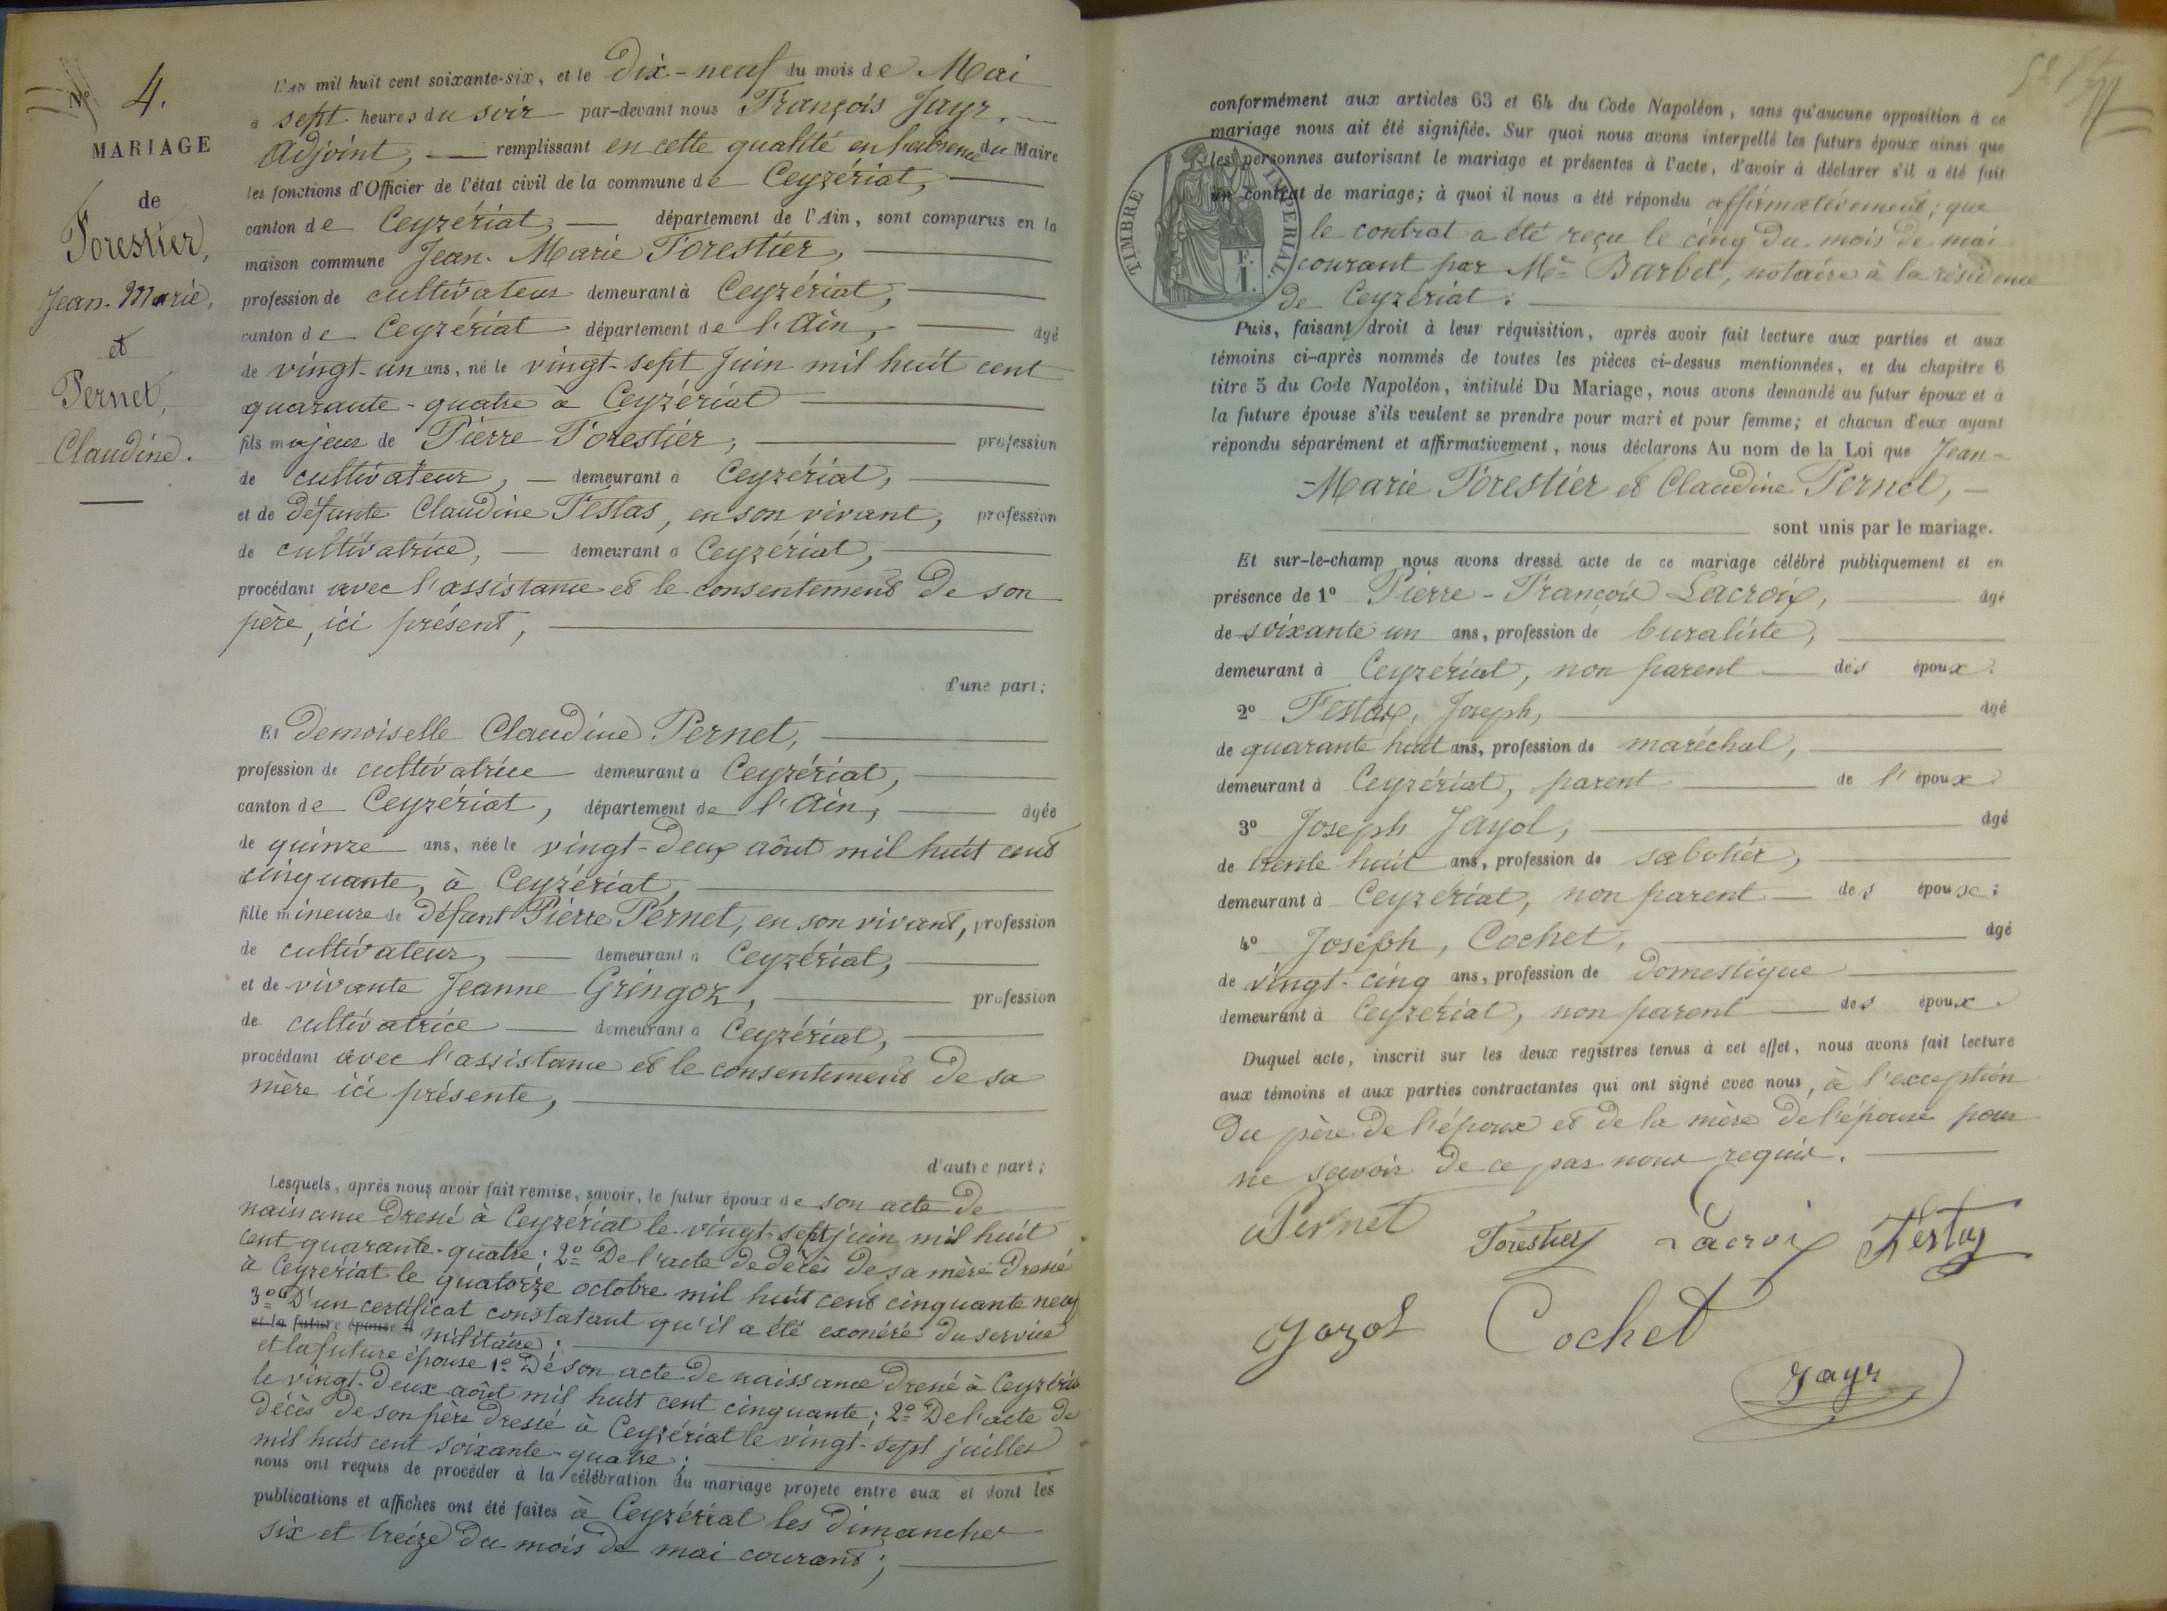 N° 4.
MARIAGE
de
Forestier,
Jean-Marie,
et
Pernet,
Claudine.
L'AN mil huit cent soixante-six, et le Dix-neuf du mois de Mai
à sept heures du soir par-devant nous François Jayr,
Adjoint, remplissant en cette qualité en l'absence du Maire
les fonctions d'Officier de l'état civil de la commune de Ceyzériat,
canton de Ceyzériat département de l'Ain, sont comparus en la
maison commune Jean-Marie Forestier,
profession de cultivateur demeurant à Ceyzériat,
canton de Ceyzériat département de l'Ain, âgé
de vingt-un ans, né le vingt-sept Juin mil huit cent
quarante-quatre à Ceyzériat
fils majeur de Pierre Forestier, profession
de cultivateur, demeurant à Ceyzériat,
et de défunte Claudine Festas, en son vivant, profession
de cultivatrice, demeurant à Ceyzériat,
procédant avec l'assistance et le consentement de son
père, ici présent,
d'une part;
Et Demoiselle Claudine Pernet,
profession de cultivatrice demeurant à Ceyzériat,
canton de Ceyzériat, département de l'Ain, âgée
de quinze ans, née le vingt-deux août mil huit cent
cinquante, à Ceyzériat,
fille mineure de défunt Pierre Pernet, en son vivant, profession
de cultivateur, demeurant à Ceyzériat,
et de vivante Jeanne Gringoz, profession
de cultivatrice demeurant à Ceyzériat,
procédant avec l'assistance et le consentement de sa
mère ici présente,
d'autre part;
Lesquels, après nous avoir fait remise, savoir, le futur époux de son acte de
naissance dressé à Ceyzériat le vingt-sept juin mil huit
cent quarante-quatre; 2° De l'acte de décès de sa mère dressé
à Ceyzériat le quatorze octobre mil huit cent cinquante neuf
3° D'un certificat constatant qu'il a été exonéré du service
et la future épouse militaire;
et la future épouse 1° De son acte de naissance dressé à Ceyzériat
le vingt-deux août mil huit cent cinquante; 2° De l'acte de
décès de son père dressé à Ceyzériat le vingt-sept juillet
mil huit cent soixante-quatre;
nous ont requis de procéder à la célébration du mariage projeté entre eux et dont les
publications et affiches ont été faites à Ceyzériat les dimanches
six et treize du mois de mai courant;
conformément aux articles 63 et 64 du Code Napoléon, sans qu'aucune opposition à ce
mariage nous ait été signifiée. Sur quoi nous avons interpellé les futurs époux ainsi que
les personnes autorisant le mariage et présentes à l'acte, d'avoir à déclarer s'il a été fait
un contrat de mariage; à quoi il nous a été répondu affirmativement; que
le contrat a été reçu le cinq du mois de mai
courant par Me Barbet, notaire à la résidence
de Ceyzériat;
TIMBRE IMPÉRIAL.
F.
1.
Puis, faisant droit à leur réquisition, après avoir fait lecture aux parties et aux
témoins ci-après nommés de toutes les pièces ci-dessus mentionnées, et du chapitre 6
titre 5 du Code Napoléon, intitulé Du Mariage, nous avons demandé au futur époux et à
la future épouse s'ils veulent se prendre pour mari et pour femme; et chacun d'eux ayant
répondu séparément et affirmativement, nous déclarons Au nom de la Loi que Jean-
-Marie Forestier et Claudine Pernet,
sont unis par le mariage.
Et sur-le-champ nous avons dressé acte de ce mariage célébré publiquement et en
présence de 1° Pierre-François Lacroix, âgé
de soixante un ans, profession de buraliste,
demeurant à Ceyzériat, non parent des époux.
2° Festas, Joseph, âgé
de quarante huit ans, profession de maréchal,
demeurant à Ceyzériat, parent de l'époux
3° Joseph Jayol, âgé
de trente huit ans, profession de sabotier,
demeurant à Ceyzériat, non parent des épouse;
4° Joseph, Cochet, âgé
de vingt-cinq ans, profession de domestique
demeurant à Ceyzériat, non parent des époux.
Duquel acte, inscrit sur les deux registres tenus à cet effet, nous avons fait lecture
aux témoins et aux parties contractantes qui ont signé avec nous, à l'exception
du père de l'époux et de la mère de l'épouse pour
ne savoir de ce pas nous requis.
Pernet Forestier Lacroix
Cochet
Jayr